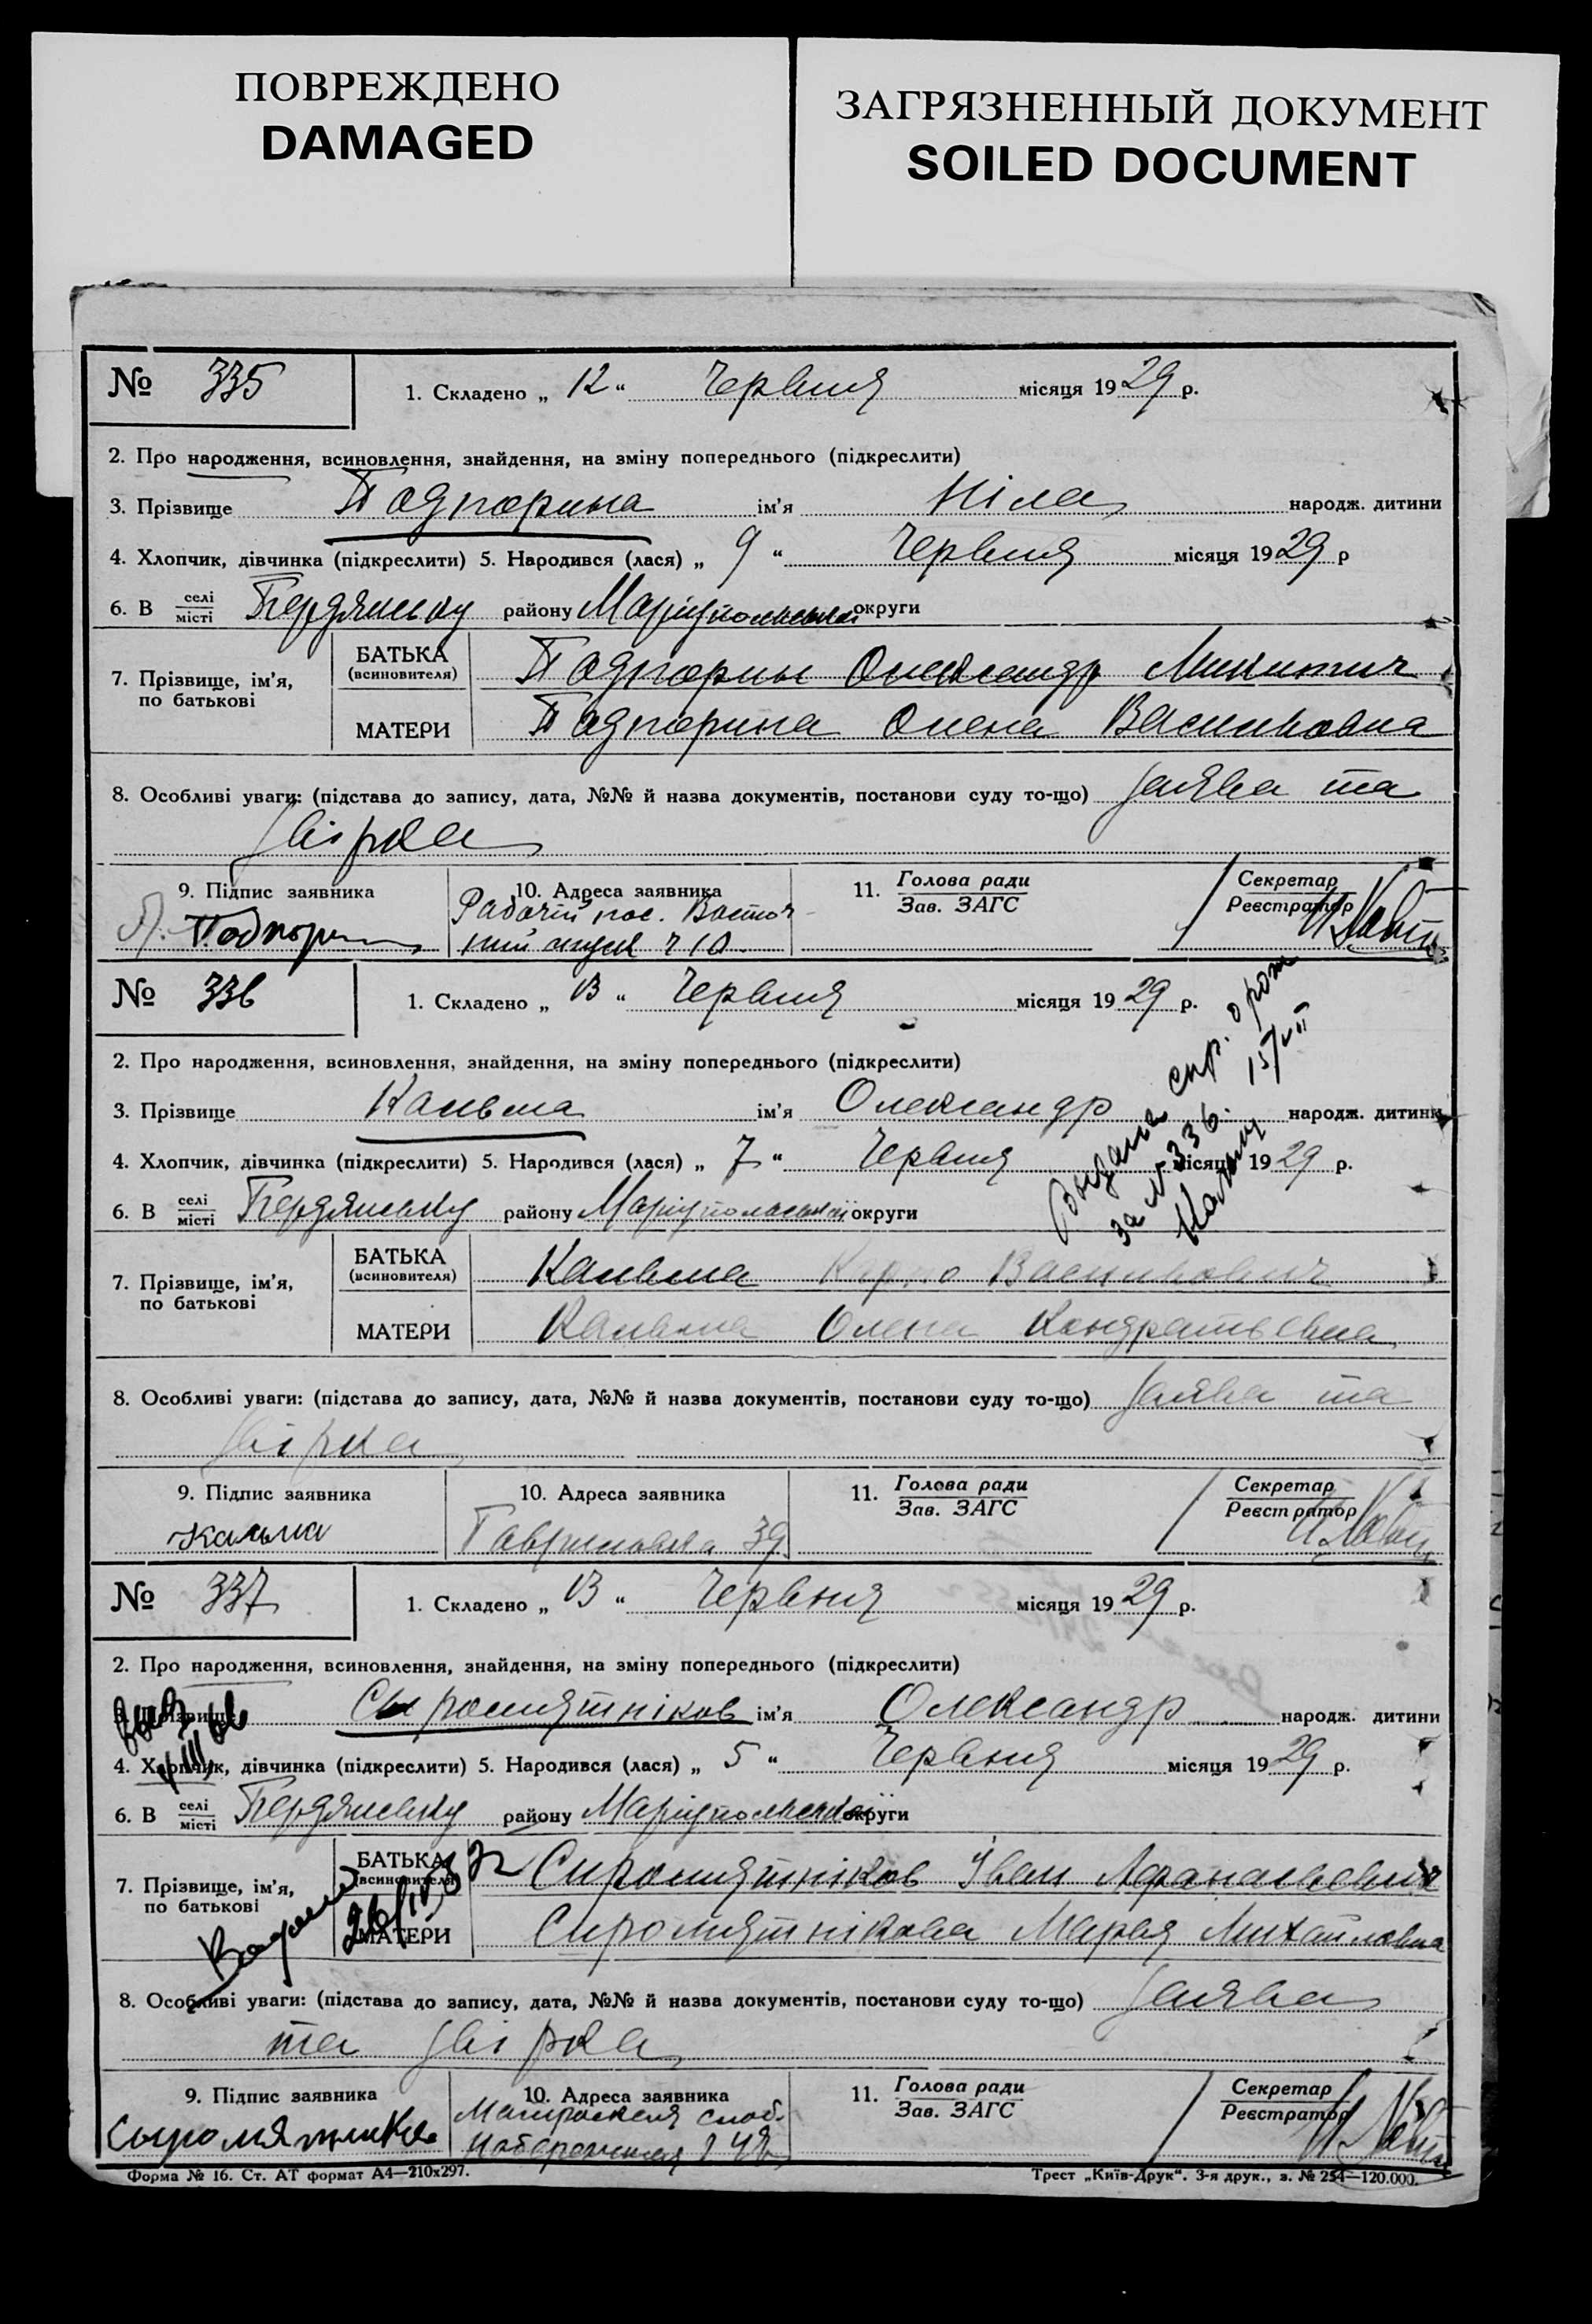 ПОВРЕЖДЕНО
DAMAGED
ЗАГРЯЗНЕННЫЙ ДОКУМЕНТ
SOILED DOCUMENT
№ 335 1. Складено „ 12 “ Червня місяця 1929 р.
2. Про народження, всиновлення, знайдення, на зміну попереднього (підкреслити)
3. Прізвище Подпорина ім’я Ніла народж. дитини
4. Хлопчик, дівчинка (підкреслити) 5. Народився (лася) „ 9 “ Червня місяця 1929 р
6. В селі місті Бердянську району Маріупольської округи
7. Прізвище, ім’я, по батькові
БАТЬКА (всиновителя) Подпорин Олександр Микитич
МАТЕРИ Подпорина Олена Василковна
8. Особливі уваги: (підстава до запису, дата, №№ й назва документів, постанови суду то-що) Заява та
звірка
9. Підпис заявника 10. Адреса заявника 11. Голова ради Зав. ЗАГС Секретар Реєстратор
Рабочій пос.
№ 336 1. Складено „ 13 “ Червня місяця 1929 р.
2. Про народження, всиновлення, знайдення, на зміну попереднього (підкреслити)
3. Прізвище Кальма ім’я Олександр народж. дитини
4. Хлопчик, дівчинка (підкреслити) 5. Народився (лася) „ 7 “ Червня місяця 1929 р.
6. В селі місті Бердянську району Маріупольської округи
Выдана спр. о рож
за № 336. 15/VII
7. Прізвище, ім’я, по батькові
БАТЬКА (всиновителя) Кальма Карпо Василкович
МАТЕРИ Кальма Олена Кондратьевна
8. Особливі уваги: (підстава до запису, дата, №№ й назва документів, постанови суду то-що) Заява та
звірка
9. Підпис заявника 10. Адреса заявника 11. Голова ради Зав. ЗАГС Секретар Реєстратор
Кальма Гавриловка 39
№ 337 1. Складено „ 13 “ Червня місяця 1929 р.
2. Про народження, всиновлення, знайдення, на зміну попереднього (підкреслити)
3. Прізвище Сыромятніков ім’я Олександр народж. дитини
4. Хлопчик, дівчинка (підкреслити) 5. Народився (лася) „ 5 “ Червня місяця 1929 р.
6. В селі місті Бердянську району Маріупольської округи
7. Прізвище, ім’я, по батькові
БАТЬКА (всиновителя) Сиромятніков Іван Афанасьевич
МАТЕРИ Сиромятнікова Марья Михайловна
8. Особливі уваги: (підстава до запису, дата, №№ й назва документів, постанови суду то-що) Заява
та звірка
9. Підпис заявника 10. Адреса заявника 11. Голова ради Зав. ЗАГС Секретар Реєстратор
Матроская слоб.
Форма № 16. Ст. АТ формат А4—210х297. Трест „Київ-Друк“. 3-я друк., з. № 254—120.000.